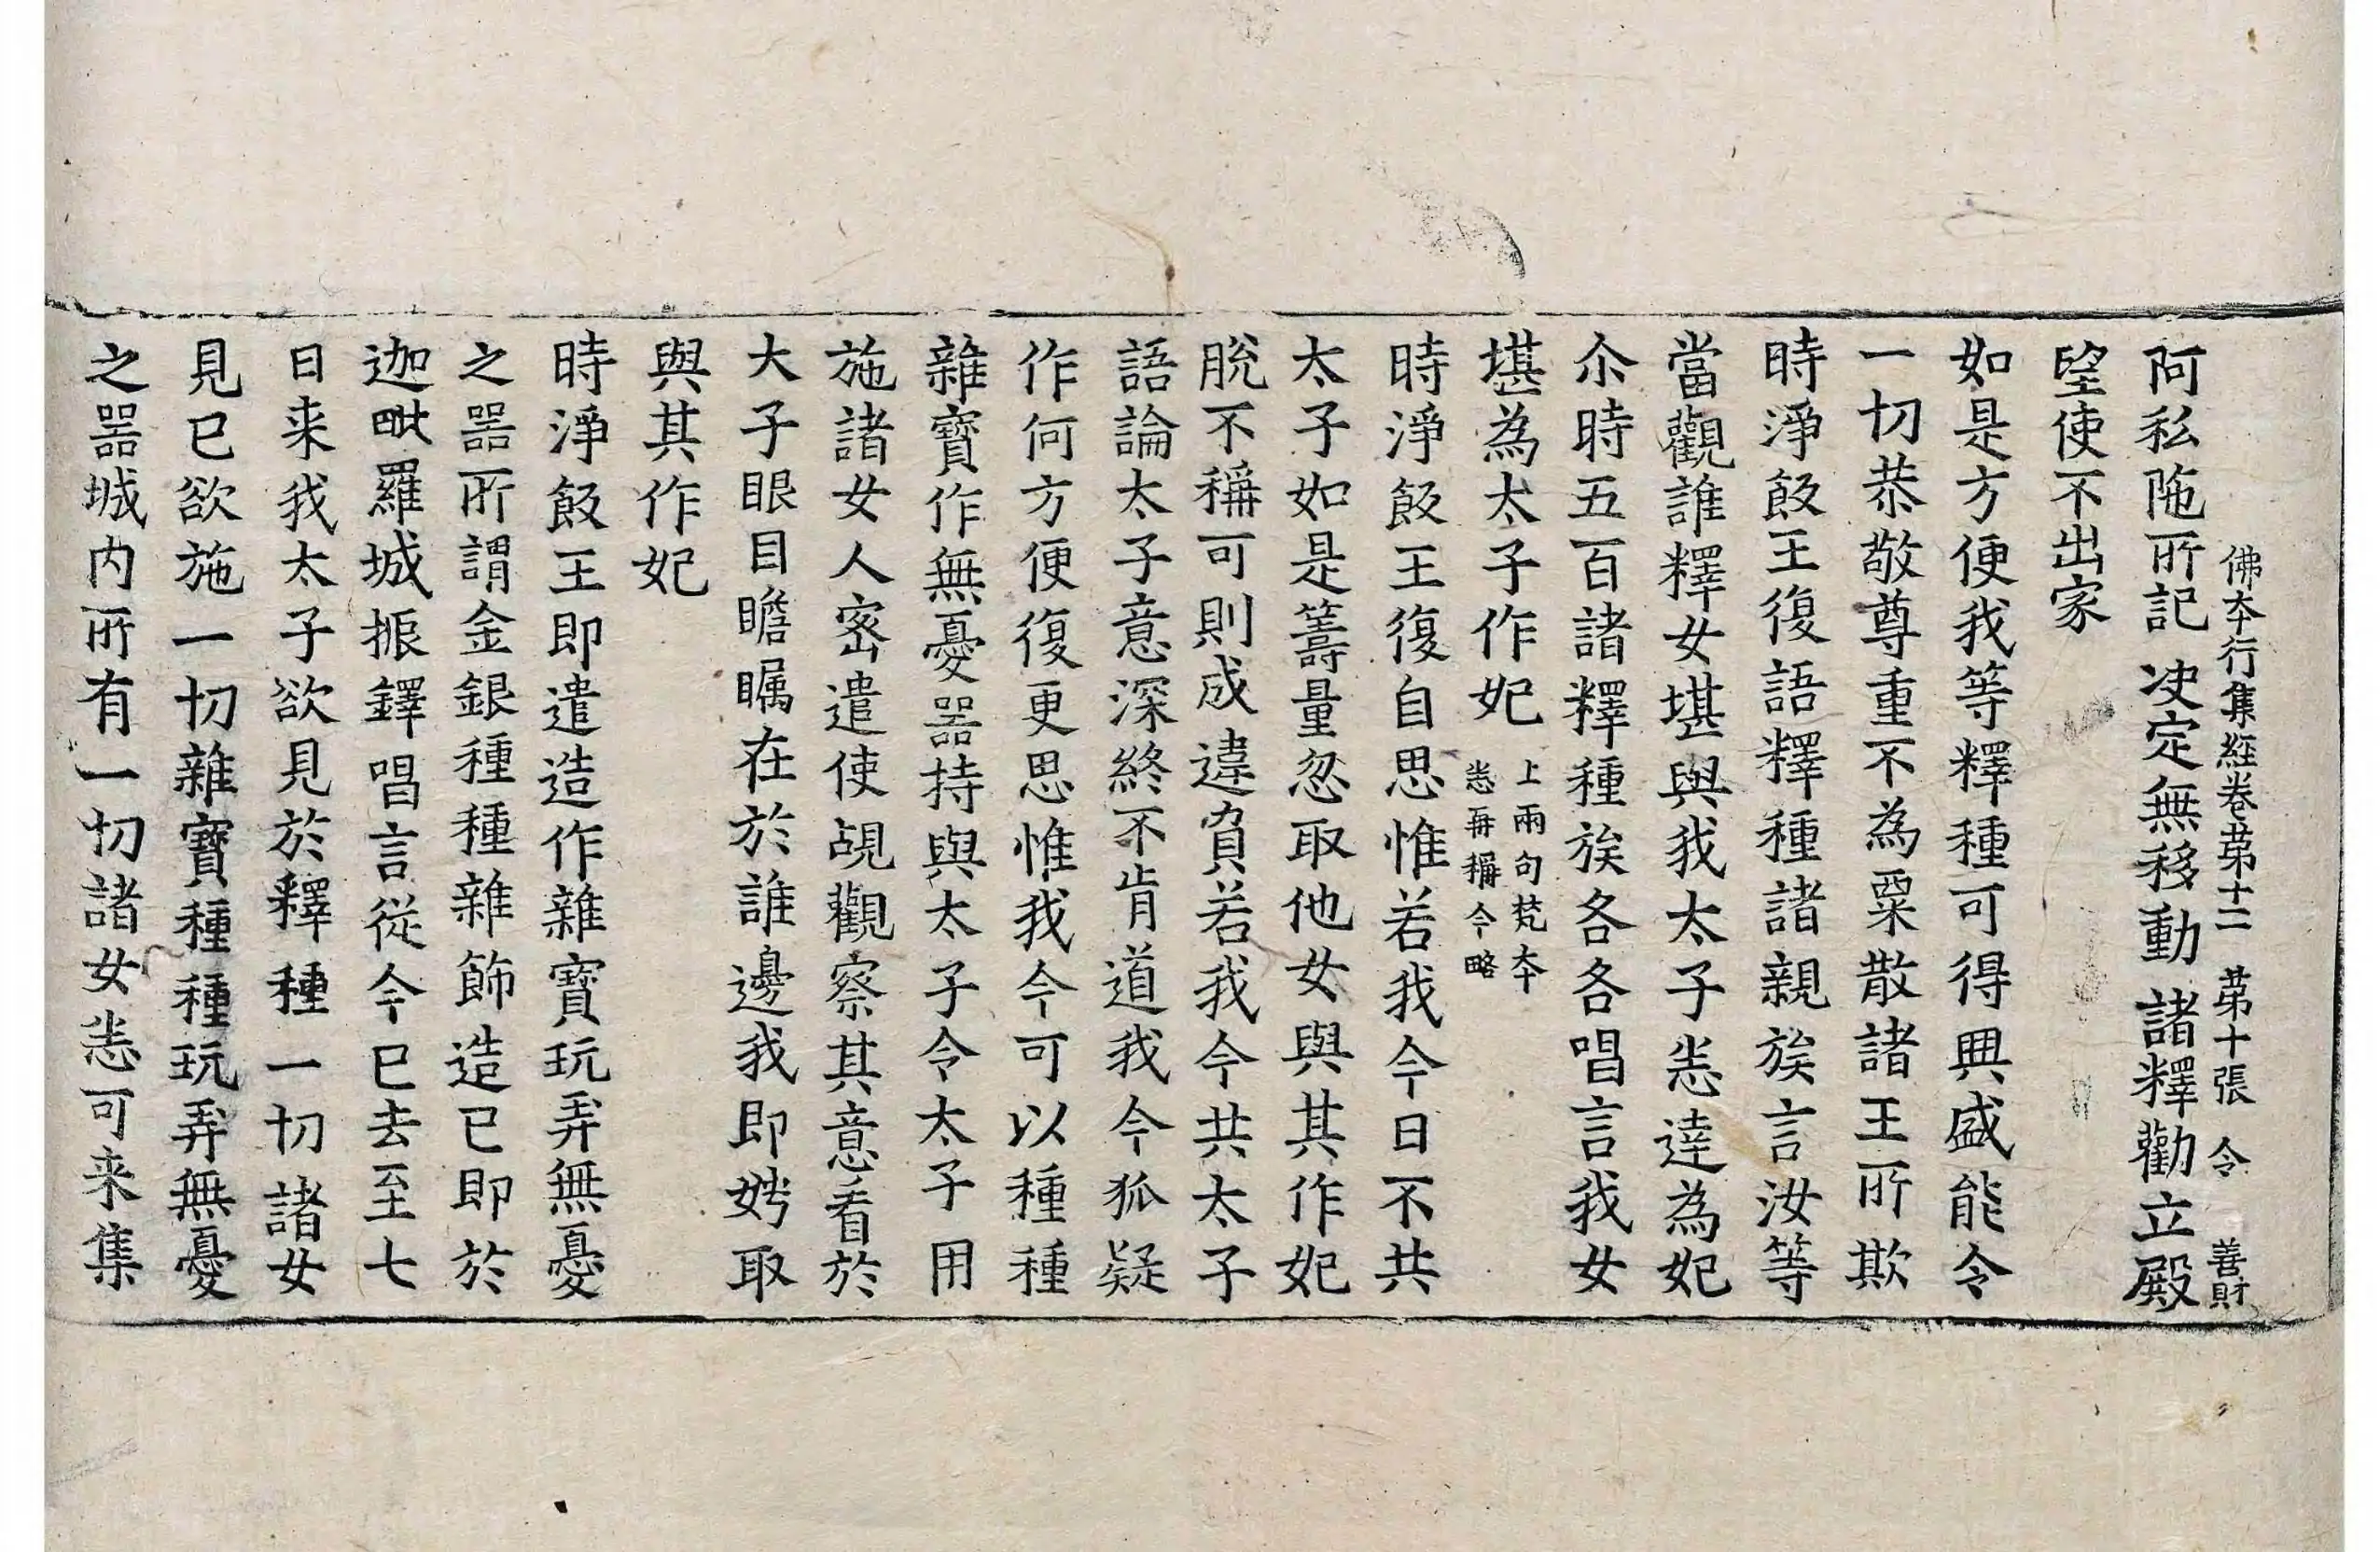 佛本行集經卷苐十二 苐十張 令 善財
阿私陁所記 决定無移動 諸釋勸立殿
望使不出家
如是方便我等釋種可得興盛能令
一切恭敬尊重不為粟散諸王所欺
時淨飯王復語釋種諸親族言汝等
當觀誰釋女堪與我太子悉達為妃
尒時五百諸釋種族各各唱言我女
堪為太子作妃 上兩句梵本悉再稱今略
時淨飯王復自思惟若我今日不共
太子如是籌量忽取他女與其作妃
脫不稱可則成違負若我今共太子
語論太子意深終不肯道我今狐疑
作何方便復更思惟我今可以種種
雜寶作無憂器持與太子令太子用
施諸女人密遣使覘觀察其意看於
大子眼目瞻瞩在於誰邊我即娉取
與其作妃
時淨飯王即遣造作雜寶玩弄無憂
之器所謂金銀種種雜飾造已即於
迦毗羅城振鐸唱言從今已去至七
日来我太子欲見於釋種一切諸女
見已欲施一切雜寶種種玩弄無憂
之器城内所有一切諸女悉可来集